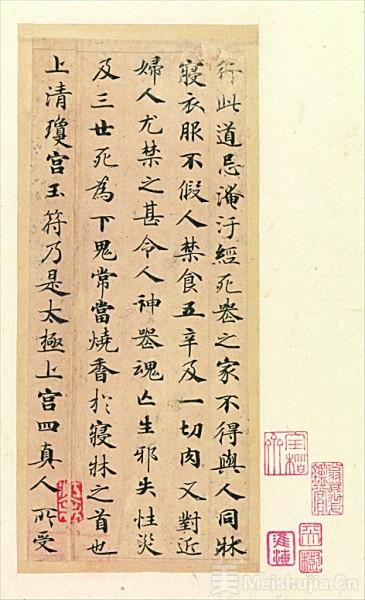 行此道忌淹汙經死喪之家不得與人同牀
寢衣服不假人禁食五辛及一切肉又對近
婦人尤禁之甚令人神喪魂亡生邪失性災
及三世死為下鬼常當燒香扵寢牀之首也
上清瓊宮玉符乃是太極上宮四真人所受
美 Meishujia.Cn